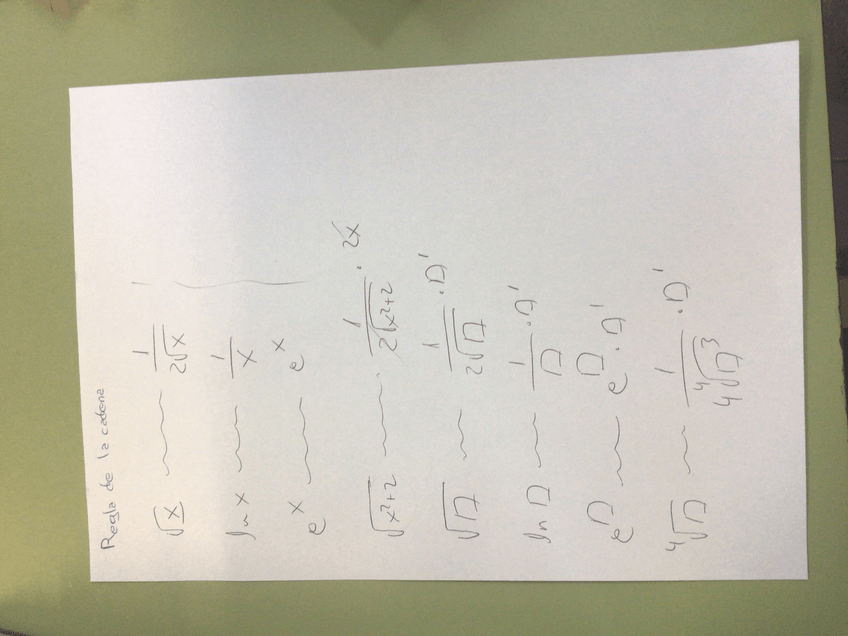 Regla de la cadena
√x ~ 1/(2√x)
ln x ~ 1/x
e^x ~ e^x
√(x²+2) ~ 1/(2√(x²+2)) · 2x
√□ ~ 1/(2√□) · □'
ln □ ~ 1/□ · □'
e^□ ~ e^□ · □'
⁴√□ ~ 1/(4 ⁴√□³) · □'